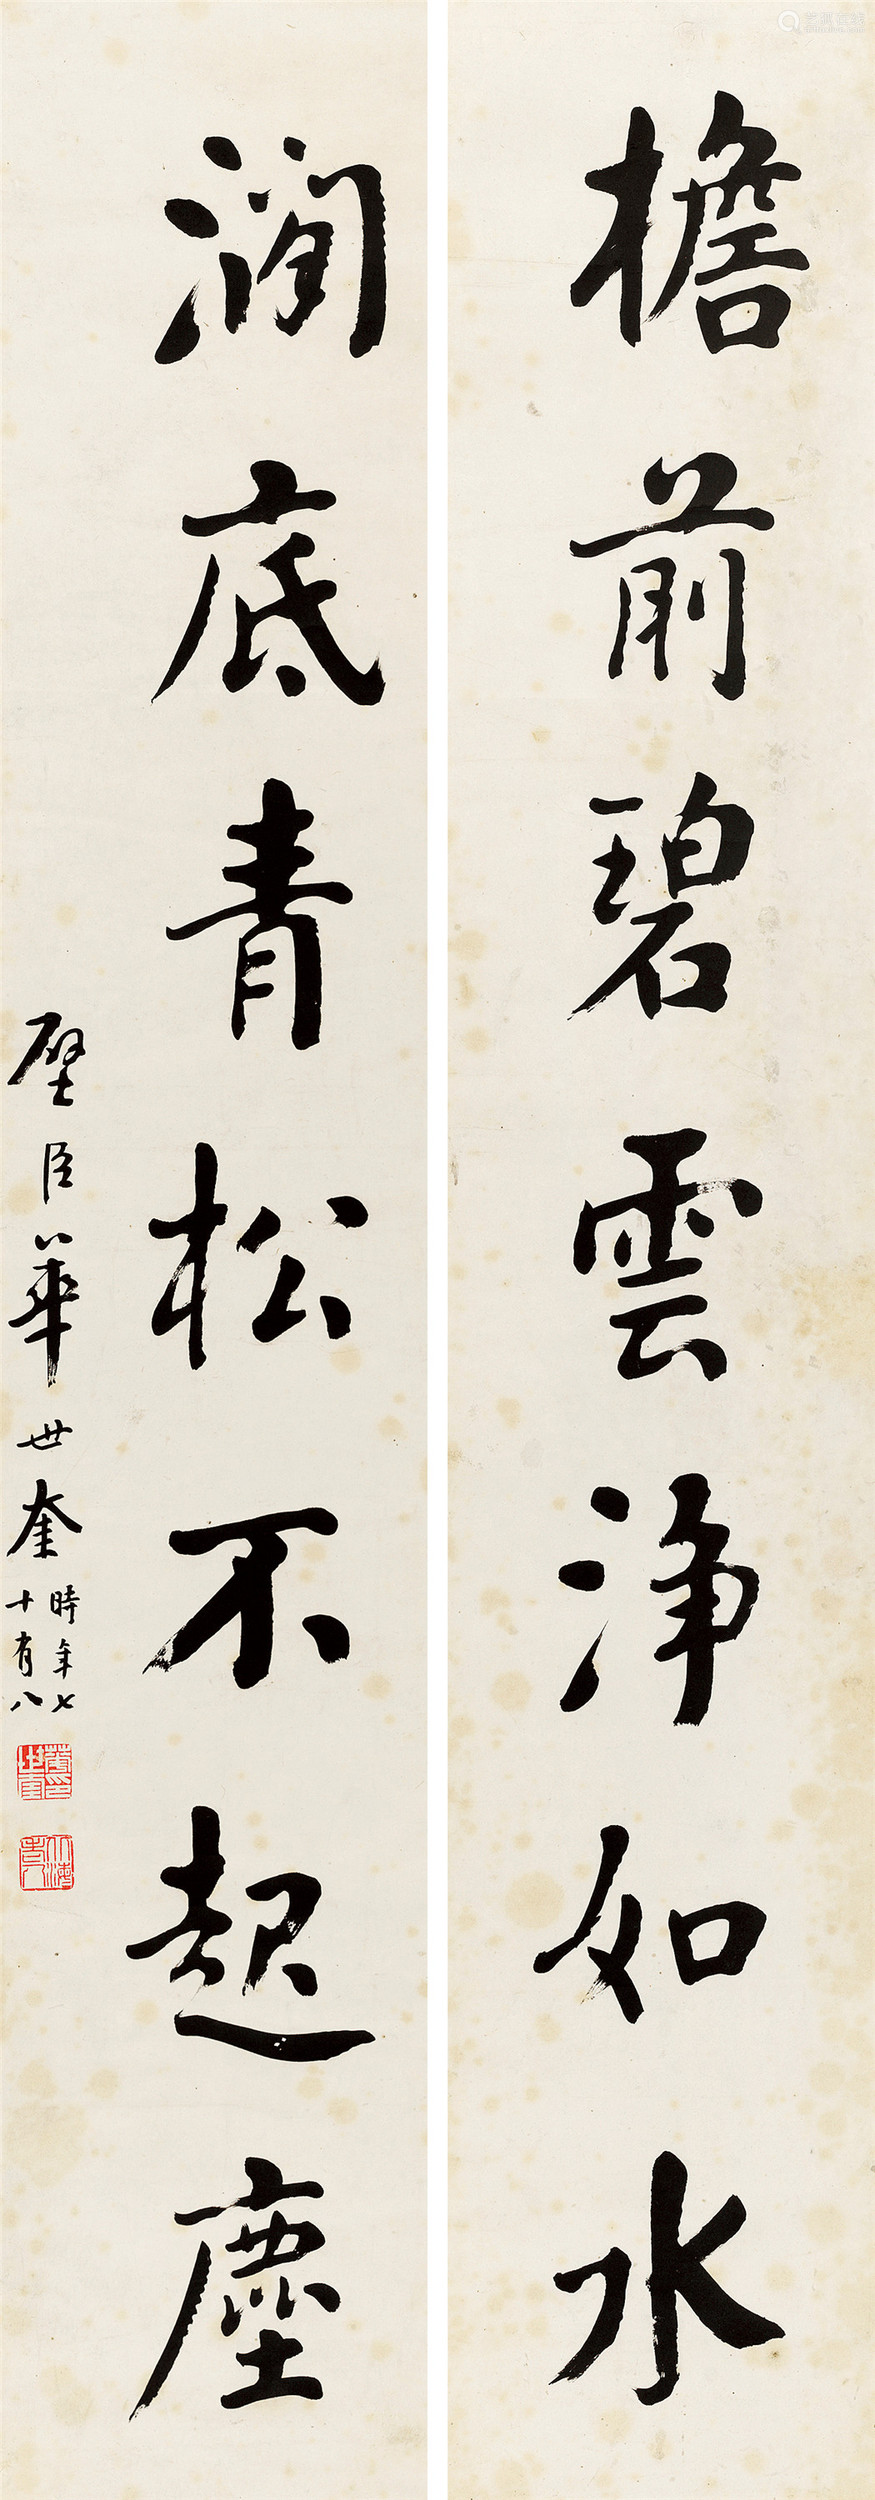 檐前碧雲淨如水
澗底青松不起塵
璧臣華世奎
時年七
十有八